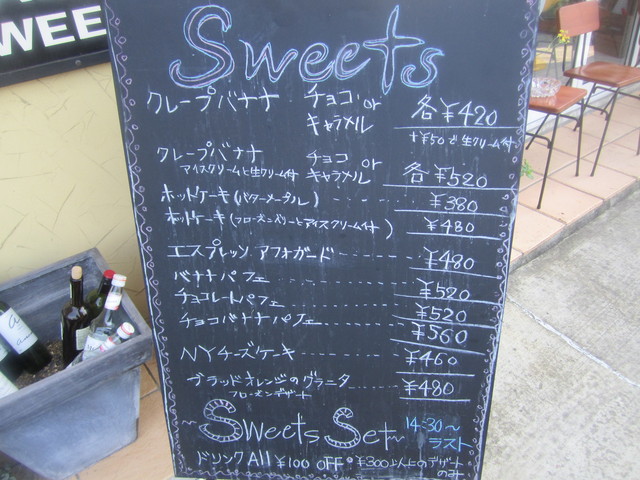 WEE
Sweets
クレープバナナ チョコ or キャラメル 各¥420
+¥50で生クリーム付
クレープバナナ チョコ or キャラメル 各¥520
アイスクリームと生クリーム付
ホットケーキ(バターメープル) ¥380
ホットケーキ(フローズンベリーとアイスクリーム付) ¥480
エスプレッソ アフォガード ¥480
バナナパフェ ¥520
チョコレートパフェ ¥520
チョコバナナパフェ ¥560
NYチーズケーキ ¥460
ブラッドオレンジのグラニータ ¥480
フローズンデザート
Sweets Set 14:30〜ラスト
ドリンクAll ¥100 OFF ¥300以上のデザートのみ